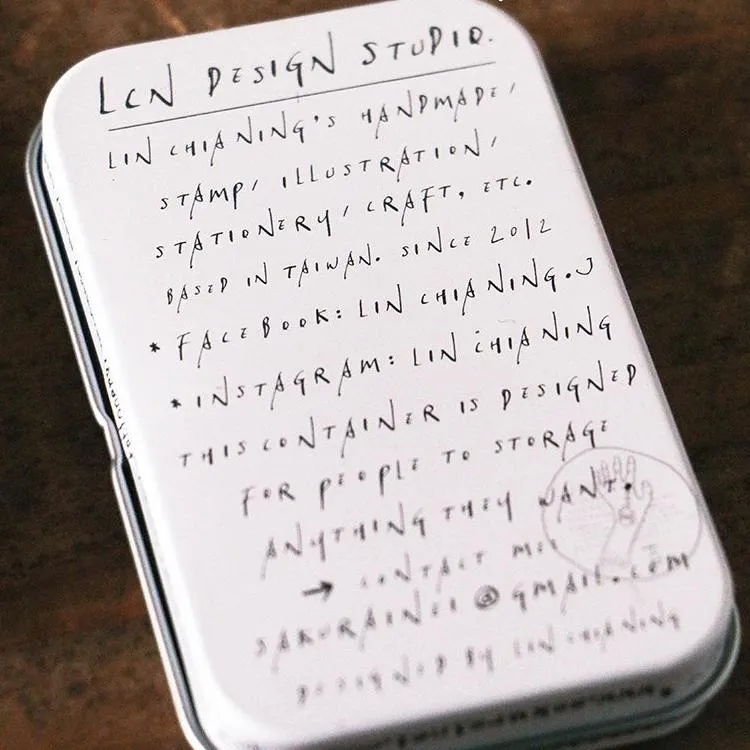 LCN DESIGN STUDIO.
LIN CHIANING'S HANDMADE/
STAMP/ ILLUSTRATION/
STATIONERY/ CRAFT, ETC.
BASED IN TAIWAN. SINCE 2012
* FACEBOOK: LIN CHIANING.J
* INSTAGRAM: LIN CHIANING
THIS CONTAINER IS DESIGNED
FOR PEOPLE TO STORAGE
ANYTHING THEY WANT.
→ CONTACT ME:
@ GMAIL.COM
DESIGNED BY LIN CHIANING